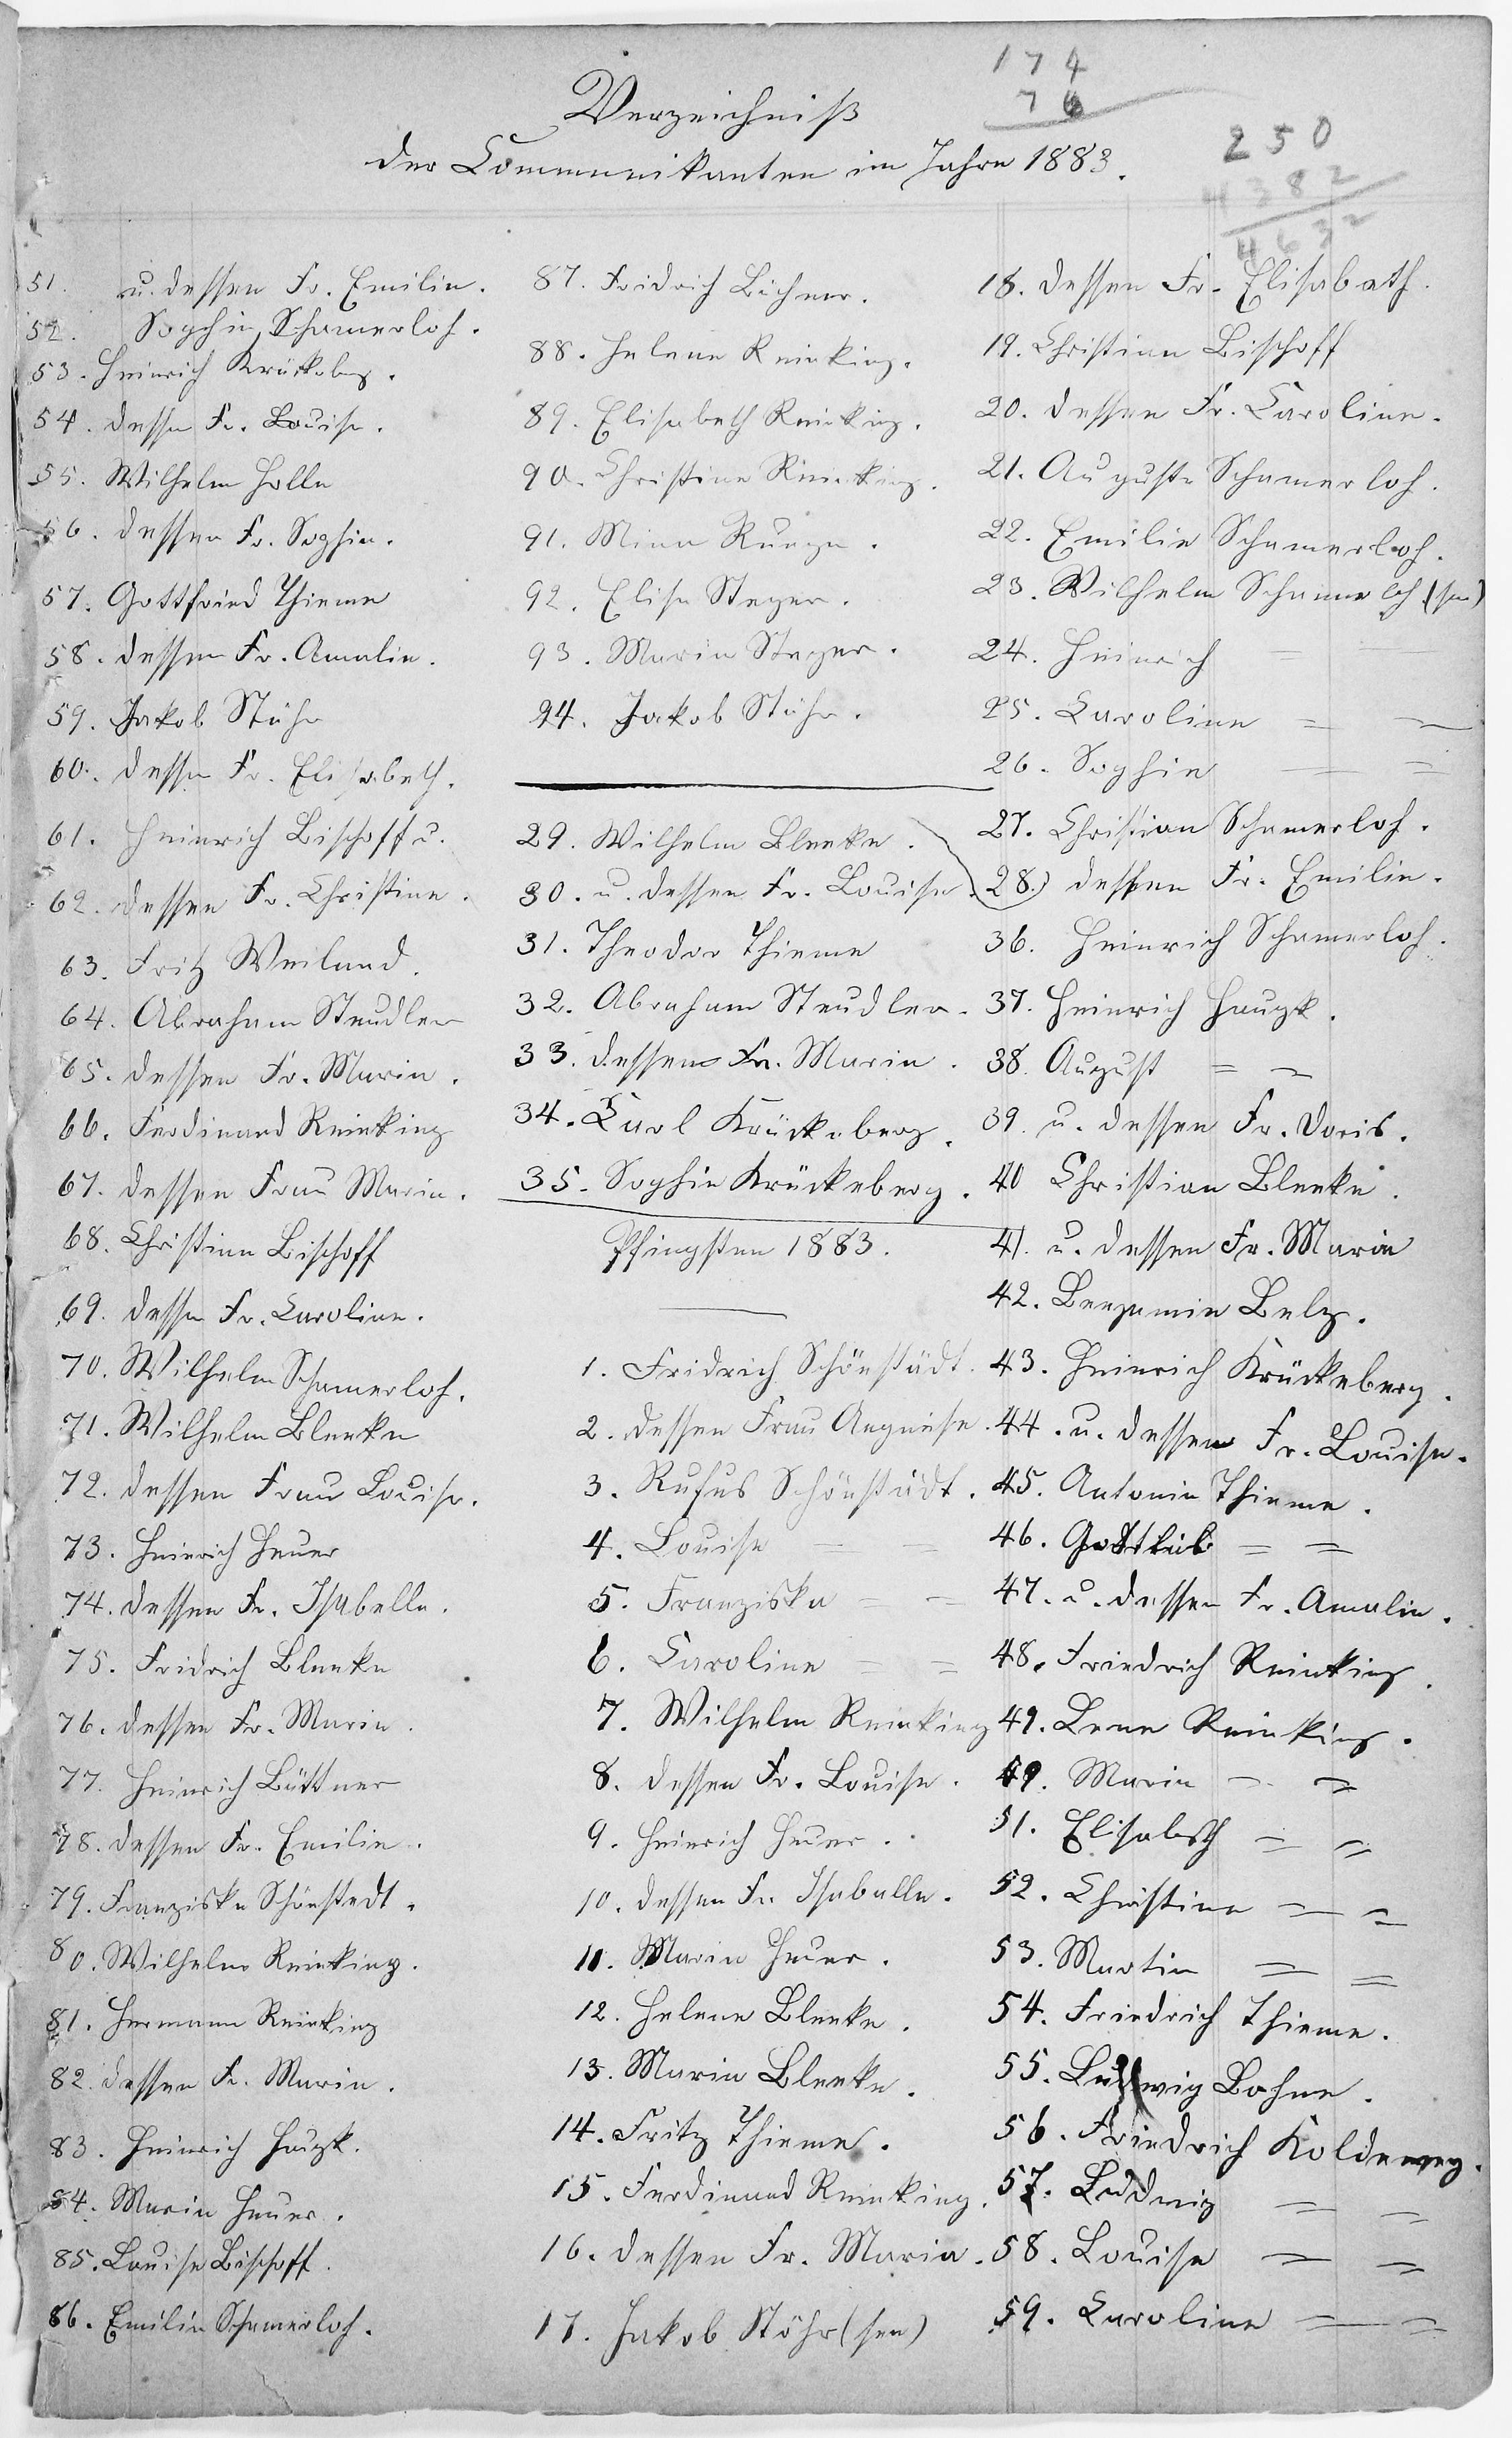 174
76
250
4382
4632
Verzeichniß
der Communikanten im Jahre 1883.
51. u. dessen Fr. Emilie.
52. Sophie Schamerloh.
53. Heinrich Krückeberg.
54. dessen Fr. Louise.
55. Wilhelm Holle
56. dessen Fr. Sophie.
57. Gottfried Thieme
58. dessen Fr. Amalie.
59. Jakob Stöhr
60. dessen Fr. Elisabeth.
61. Heinrich Bischoff u.
62. dessen Fr. Christine.
63. Fritz Weiland.
64. Abraham Steudler
65. dessen Fr. Marie.
66. Ferdinand Reinking
67. dessen Frau Marie.
68. Christian Bischoff
69. dessen Fr. Caroline.
70. Wilhelm Schamerloh.
71. Wilhelm Bleeke
72. dessen Frau Louise.
73. Heinrich Heuer
74. dessen Fr. Isabelle.
75. Fridrich Bleeke
76. dessen Fr. Marie.
77. Heinrich Büttner
78. dessen Fr. Emilie.
79. Franziska Schönstedt.
80. Wilhelm Reinking.
81. Hermann Reinking
82. dessen Fr. Marie.
83. Heinrich Haupt.
84. Marie Heuer.
85. Louise Bischoff.
86. Emilie Schamerloh.
87. Fridrich Büchner.
88. Helene Reinking.
89. Elisabeth Reinking.
90. Christine Reinking.
91. Mina Runge.
92. Elise Steger.
93. Marie Steger.
94. Jakob Stöhr.
29. Wilhelm Bleeke.
30. u. dessen Fr. Louise.
31. Theodor Thieme
32. Abraham Steudler.
33. dessen Fr. Marie.
34. Carl Krückeberg.
35. Sophie Krückeberg.
Pfingsten 1883.
1. Fridrich Schönstädt.
2. dessen Frau Angnese.
3. Rufus Schönstädt.
4. Louise = =
5. Franziska = =
6. Caroline = =
7. Wilhelm Reinking
8. dessen Fr. Louise.
9. Heinrich Heuer.
10. dessen Fr. Isabelle.
11. Marie Heuer.
12. Helene Bleeke.
13. Marie Bleeke.
14. Fritz Thieme.
15. Ferdinand Reinking.
16. dessen Fr. Marie.
17. Jakob Stöhr (sen)
18. dessen Fr. Elisabeth.
19. Christian Bischoff
20. dessen Fr. Caroline.
21. Auguste Schamerloh.
22. Emilie Schamerloh.
23. Wilhelm Schamerloh (sen)
24. Heinrich = =
25. Caroline = =
26. Sophie = =
27. Christian Schamerloh.
28.) dessen Fr. Emilie.
36. Heinrich Schamerloh.
37. Heinrich Haupt.
38. August = =
39. u. dessen Fr. Doris.
40 Christian Bleeke.
41. u. dessen Fr. Marie
42. Benjamin Belz.
43. Heinrich Krückeberg.
44. u. dessen Fr. Louise.
45. Antonie Thieme.
46. Gottlieb = =
47. u. dessen Fr. Amalie.
48. Friedrich Reinking.
49. Lene Reinking.
49. Marie = =
51. Elisabeth = =
52. Christine = =
53. Martin = =
54. Friedrich Thieme.
55. Ludwig Bohne.
56. Friedrich Koldewey.
57. Ludwig = =
58. Louise = =
59. Caroline = =